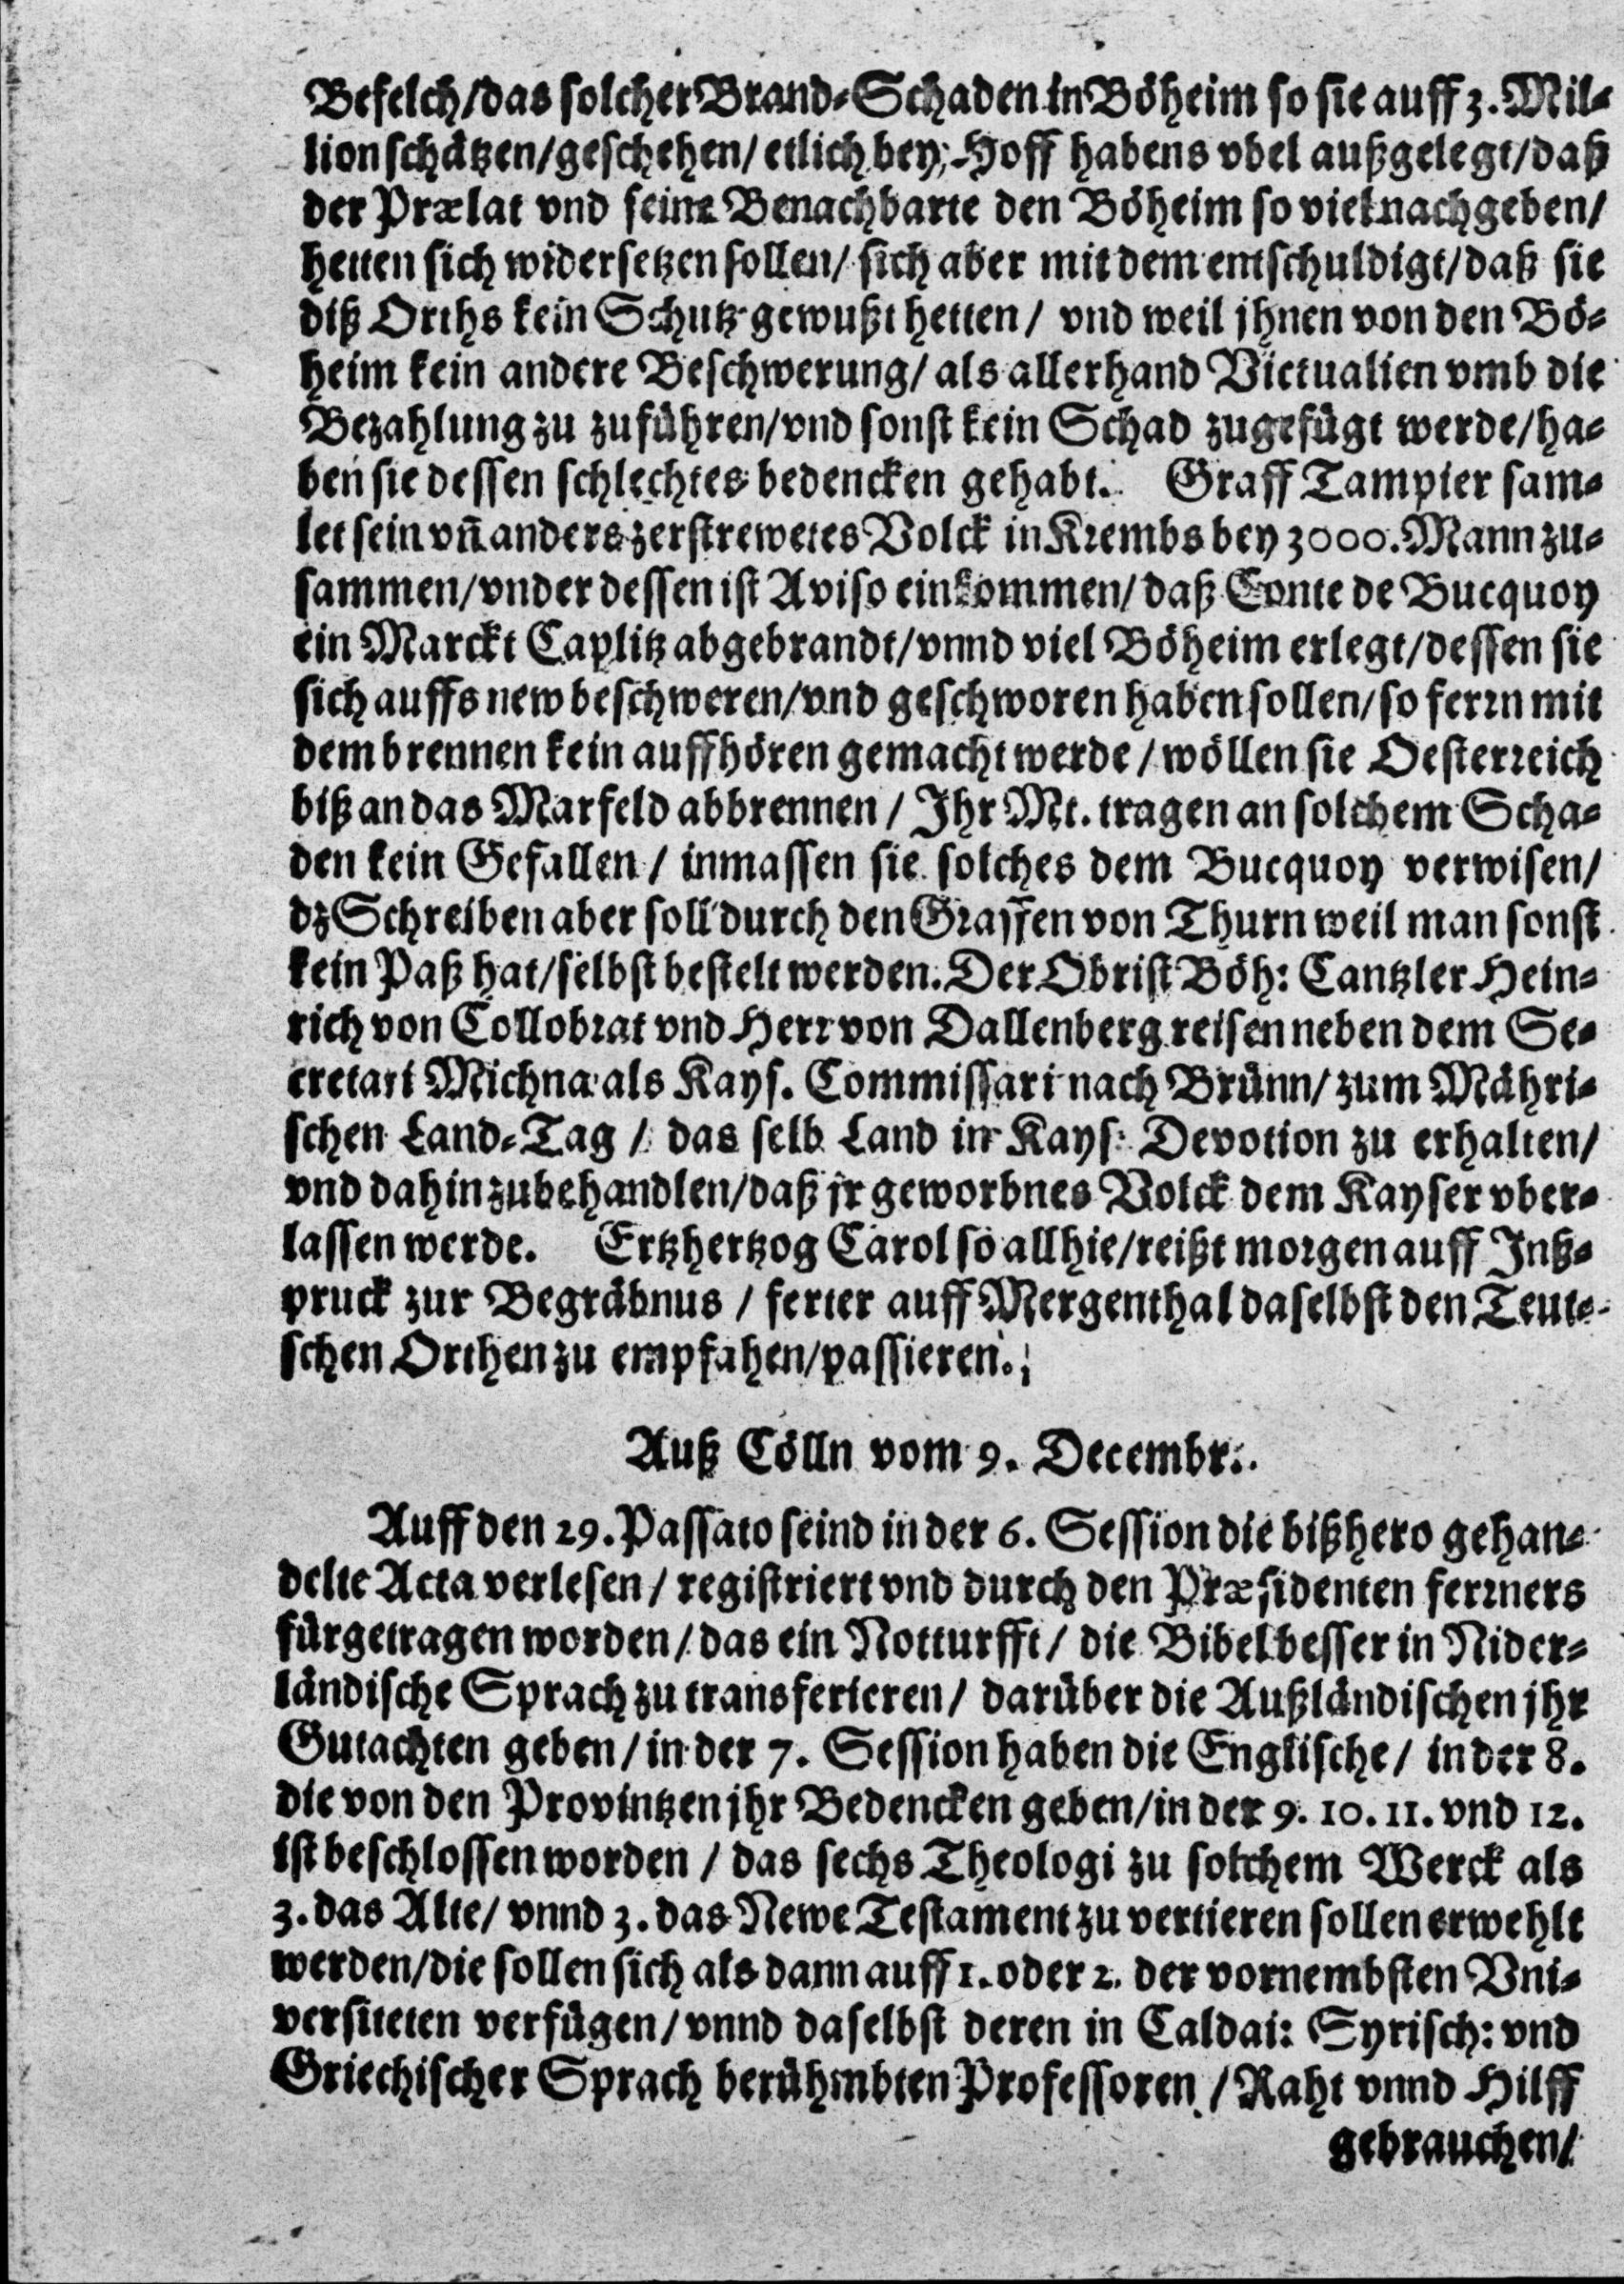 Befelch/das solcher Brand-Schaden in Böheim so sie auff 3. Mil-
lion schätzen/geschehen/ etlich bey Hoff habens vbel außgelegt/daß
der Prælat vnd seine Benachbarte den Böheim so viel nachgeben/
hetten sich widersetzen sollen/ sich aber mit dem entschuldigt/daß sie
diß Orths kein Schutz gewußt hetten/ vnd weil jhnen von den Bö-
heim kein andere Beschwerung/ als allerhand Victualien vmb die
Bezahlung zu zuführen/vnd sonst kein Schad zugefügt werde/ha-
ben sie dessen schlechtes bedencken gehabt. Graff Tampier sam-
let sein vñ anders zerstrewetes Volck in Krembs bey 3000. Mann zu-
sammen/vnder dessen ist Aviso einkommen/ daß Conte de Bucquoy
ein Marckt Caplitz abgebrandt/vnnd viel Böheim erlegt/dessen sie
sich auffs new beschweren/vnd geschworen haben sollen/so ferrn mit
dem brennen kein auffhören gemacht werde/wöllen sie Oesterreich
biß an das Marfeld abbrennen/ Ihr Mt. tragen an solchem Scha-
den kein Gefallen/ inmassen sie solches dem Bucquoy verwisen/
dz Schreiben aber soll durch den Graffen von Thurn weil man sonst
kein Paß hat/selbst bestelt werden. Der Obrist Böh: Cantzler Hein-
rich von Collobrat vnd Herr von Dallenberg reisen neben dem Se-
cretari Michna als Kays. Commissari nach Brünn/ zum Mähri-
schen Land-Tag/ das selb Land in Kays: Devotion zu erhalten/
vnd dahin zubehandlen/daß jr geworbnes Volck dem Kayser vber-
lassen werde. Ertzhertzog Carol so allhie/reißt morgen auff Inß-
pruck zur Begräbnus/ ferter auff Mergenthal daselbst den Teut-
schen Orthen zu empfahen/passieren.
Auß Cölln vom 9. Decembr.
Auff den 29. Passato seind in der 6. Session die bißhero gehan-
delte Acta verlesen/ registriert vnd durch den Præsidenten ferrners
fürgetragen worden/ das ein Notturfft/ die Bibel besser in Nider-
ländische Sprach zu transferieren/ darüber die Außländischen jhr
Gutachten geben/in der 7. Session haben die Englische/ in der 8.
die von den Provintzen jhr Bedencken geben/in der 9. 10. 11. vnd 12.
ist beschlossen worden/ das sechs Theologi zu solchem Werck als
3. das Alte/ vnnd 3. das Newe Testament zu vertieren sollen erwehlt
werden/die sollen sich als dann auff 1. oder 2. der vornembsten Vni-
versiteten verfügen/vnnd daselbst deren in Caldai: Syrisch: vnd
Griechischer Sprach berühmbten Professoren/Raht vnnd Hilff
gebrauchen/